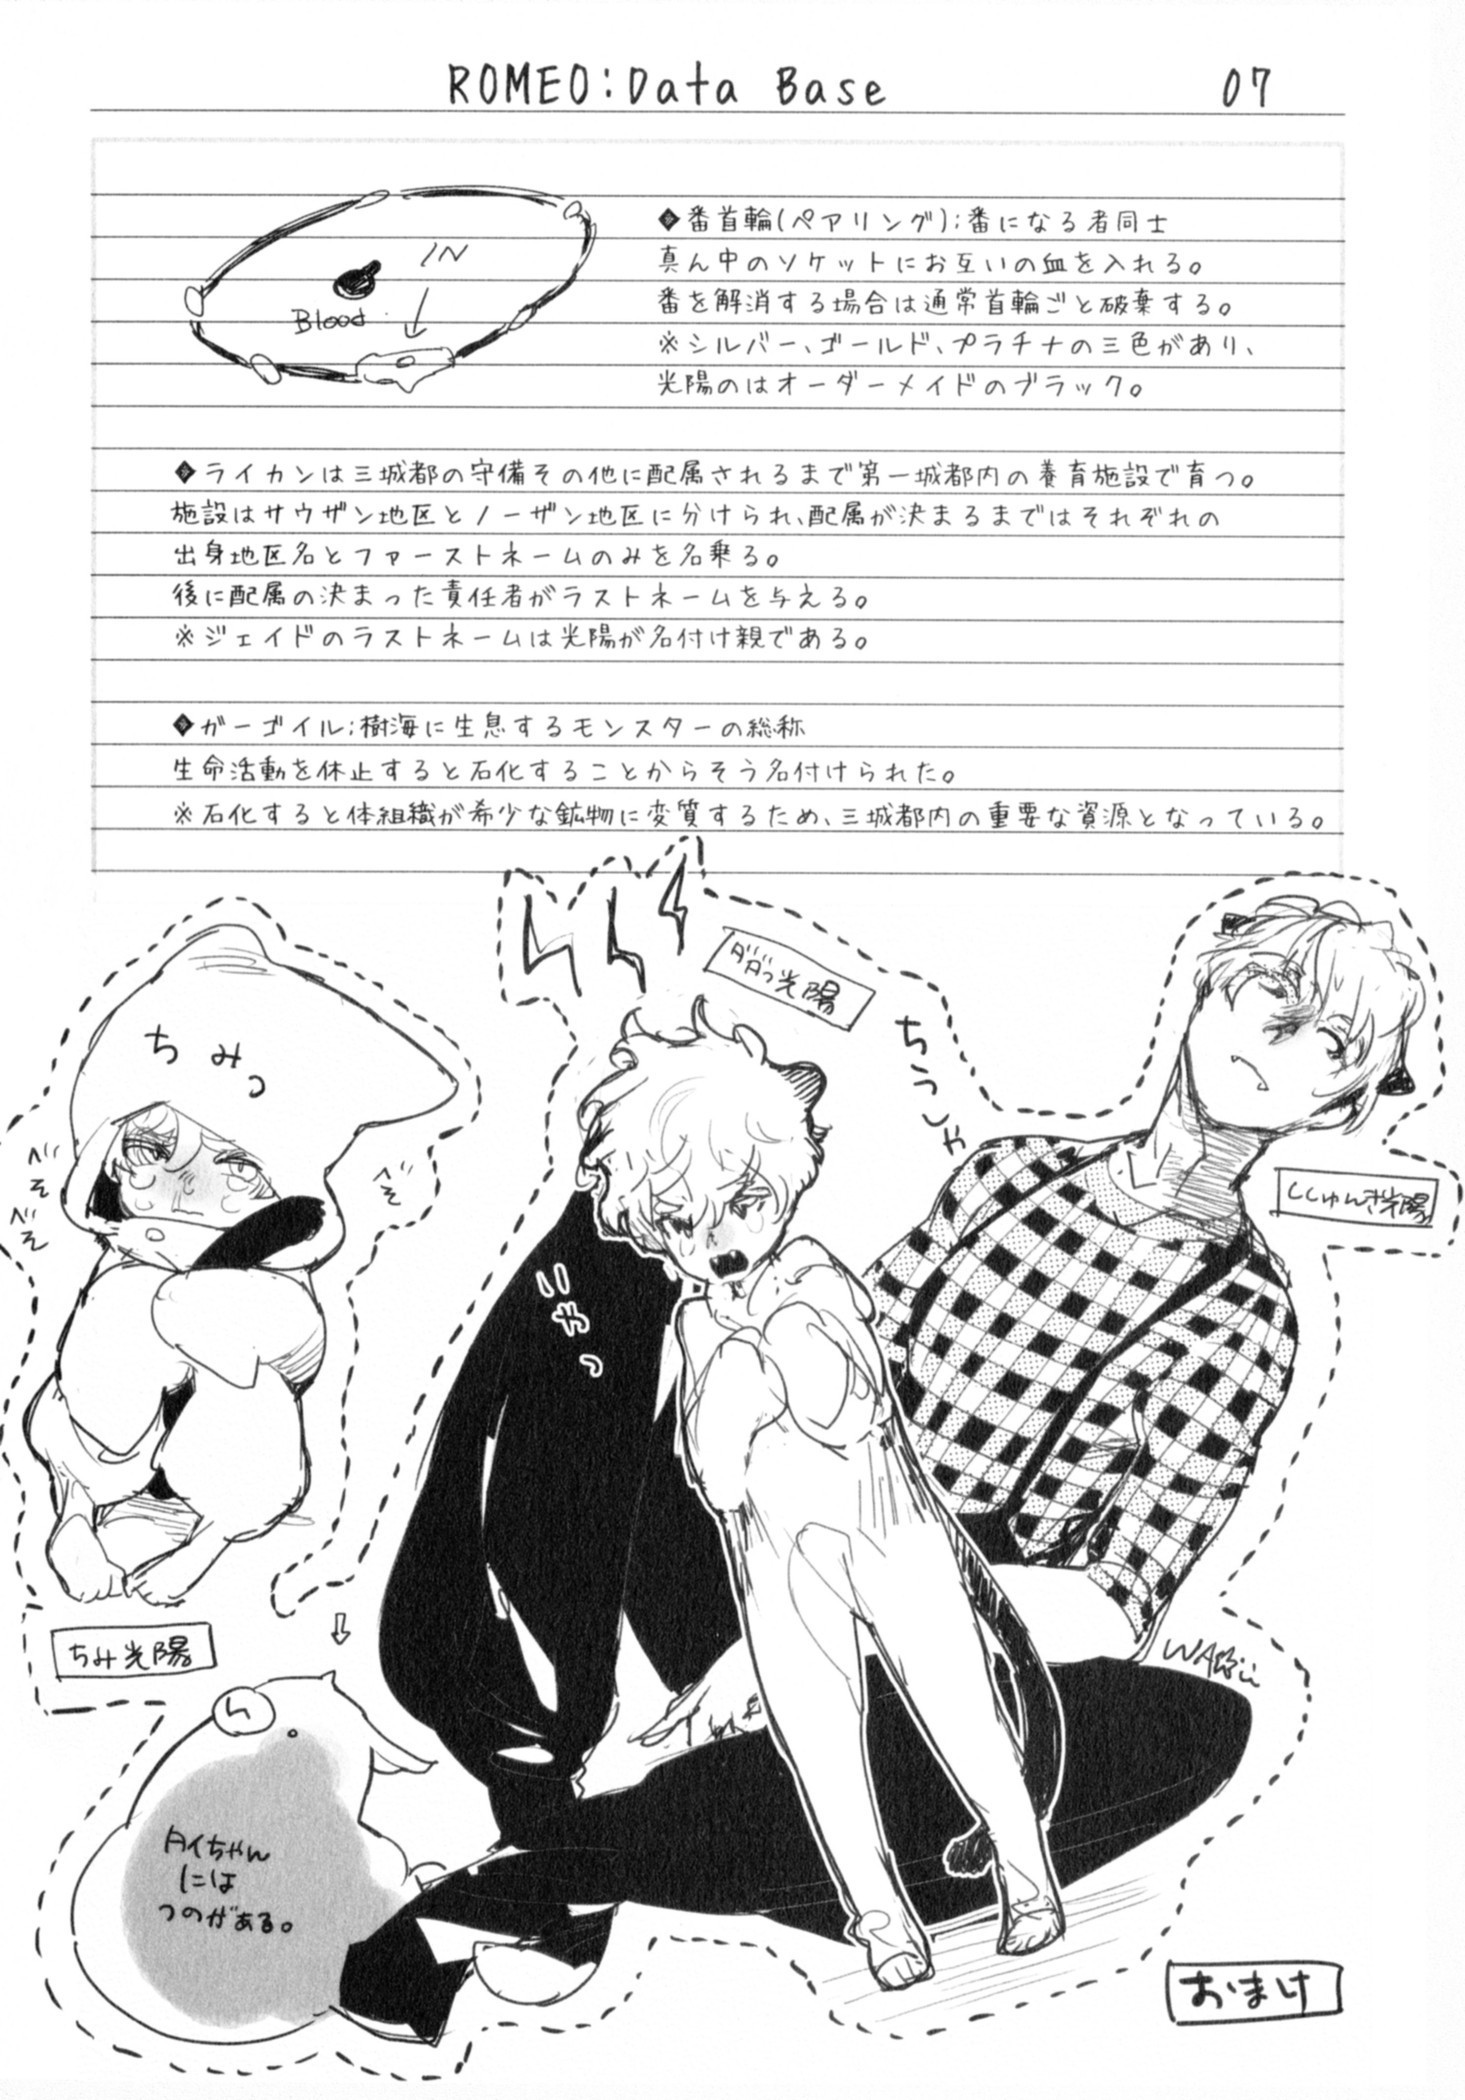 ROMEO:Data Base
07
IN
Blood
◆番首輪(ペアリング);番になる者同士
真ん中のソケットにお互いの血を入れる。
番を解消する場合は通常首輪ごと破棄する。
※シルバー、ゴールド、プラチナの三色があり、
光陽のはオーダーメイドのブラック。
◆ライカンは三城都の守備その他に配属されるまで第一城都内の養育施設で育つ。
施設はサウザン地区とノーザン地区に分けられ、配属が決まるまではそれぞれの
出身地区名とファーストネームのみを名乗る。
後に配属の決まった責任者がラストネームを与える。
※ジェイドのラストネームは光陽が名付け親である。
◆ガーゴイル;樹海に生息するモンスターの総称
生命活動を休止すると石化することからそう名付けられた。
※石化すると体組織が希少な鉱物に変質するため、三城都内の重要な資源となっている。
ダダっ光陽
ちみっ
ちうしゃ
べそ
べそ
べそ
ししゅんき光陽
いやっ
ちみ光陽
タイちゃん
には
つのがある。
おまけ